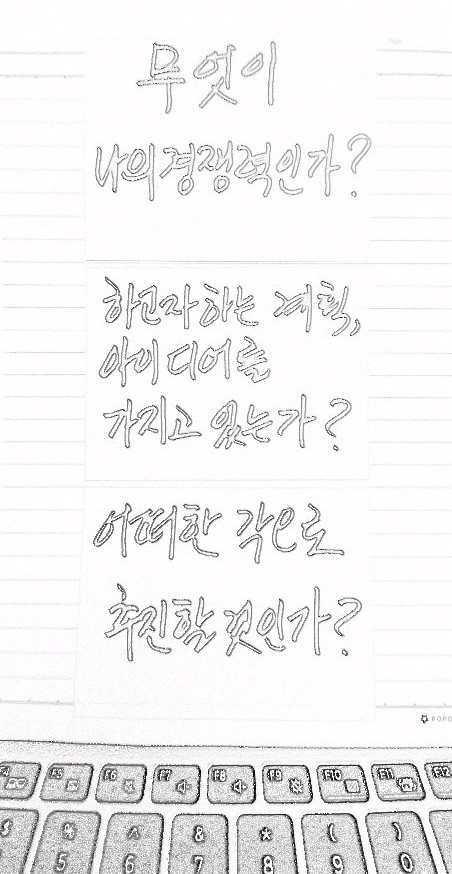 무엇이
나의 경쟁력인가?
하고자 하는 계획,
아이디어를
가지고 있는가?
어떠한 각으로
추진할 것인가?
POPO
F5 F6 F7 F8 F9 F10 F11 F12
% ^ & * ( )
5 6 7 8 9 0